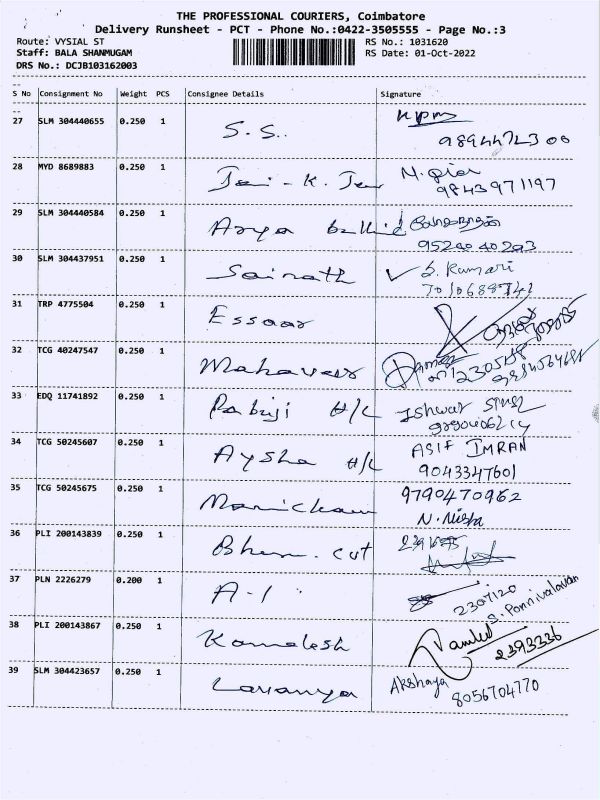 THE PROFESSIONAL COURIERS, Coimbatore
Delivery Runsheet - PCT - Phone No.:0422-3505555 - Page No.:3
Route: VYSIAL ST
RS No.: 1031620
Staff: BALA SHANMUGAM
RS Date: 01-Oct-2022
DRS No.: DCJB103162003
S No Consignment No Weight PCS Consignee Details Signature
27 SLM 304440655 0.250 1 S.S.
28 MYD 8689883 0.250 1
9843971197
29 SLM 304440584 0.250 1 Arya
9524040293
30 SLM 304437951 0.250 1 Sairath S. Kumari
31 TRP 4775504 0.250 1 Essaar
32 TCG 40247547 0.250 1 Mahaveer
33 EDQ 11741892 0.250 1 Pabuji H/L Ishwar Singh
34 TCG 50245607 0.250 1 Aysha H/L ASIF IMRAN
9043347601
35 TCG 50245675 0.250 1 Manickam 9790470962
N. Nisha
36 PLI 200143839 0.250 1 cut
37 PLN 2226279 0.200 1 A-1 2307120
S. Ponnivalavan
38 PLI 200143867 0.250 1 Kamalesh 2393336
39 SLM 304423657 0.250 1 Lavanya Akshaya
8056704770